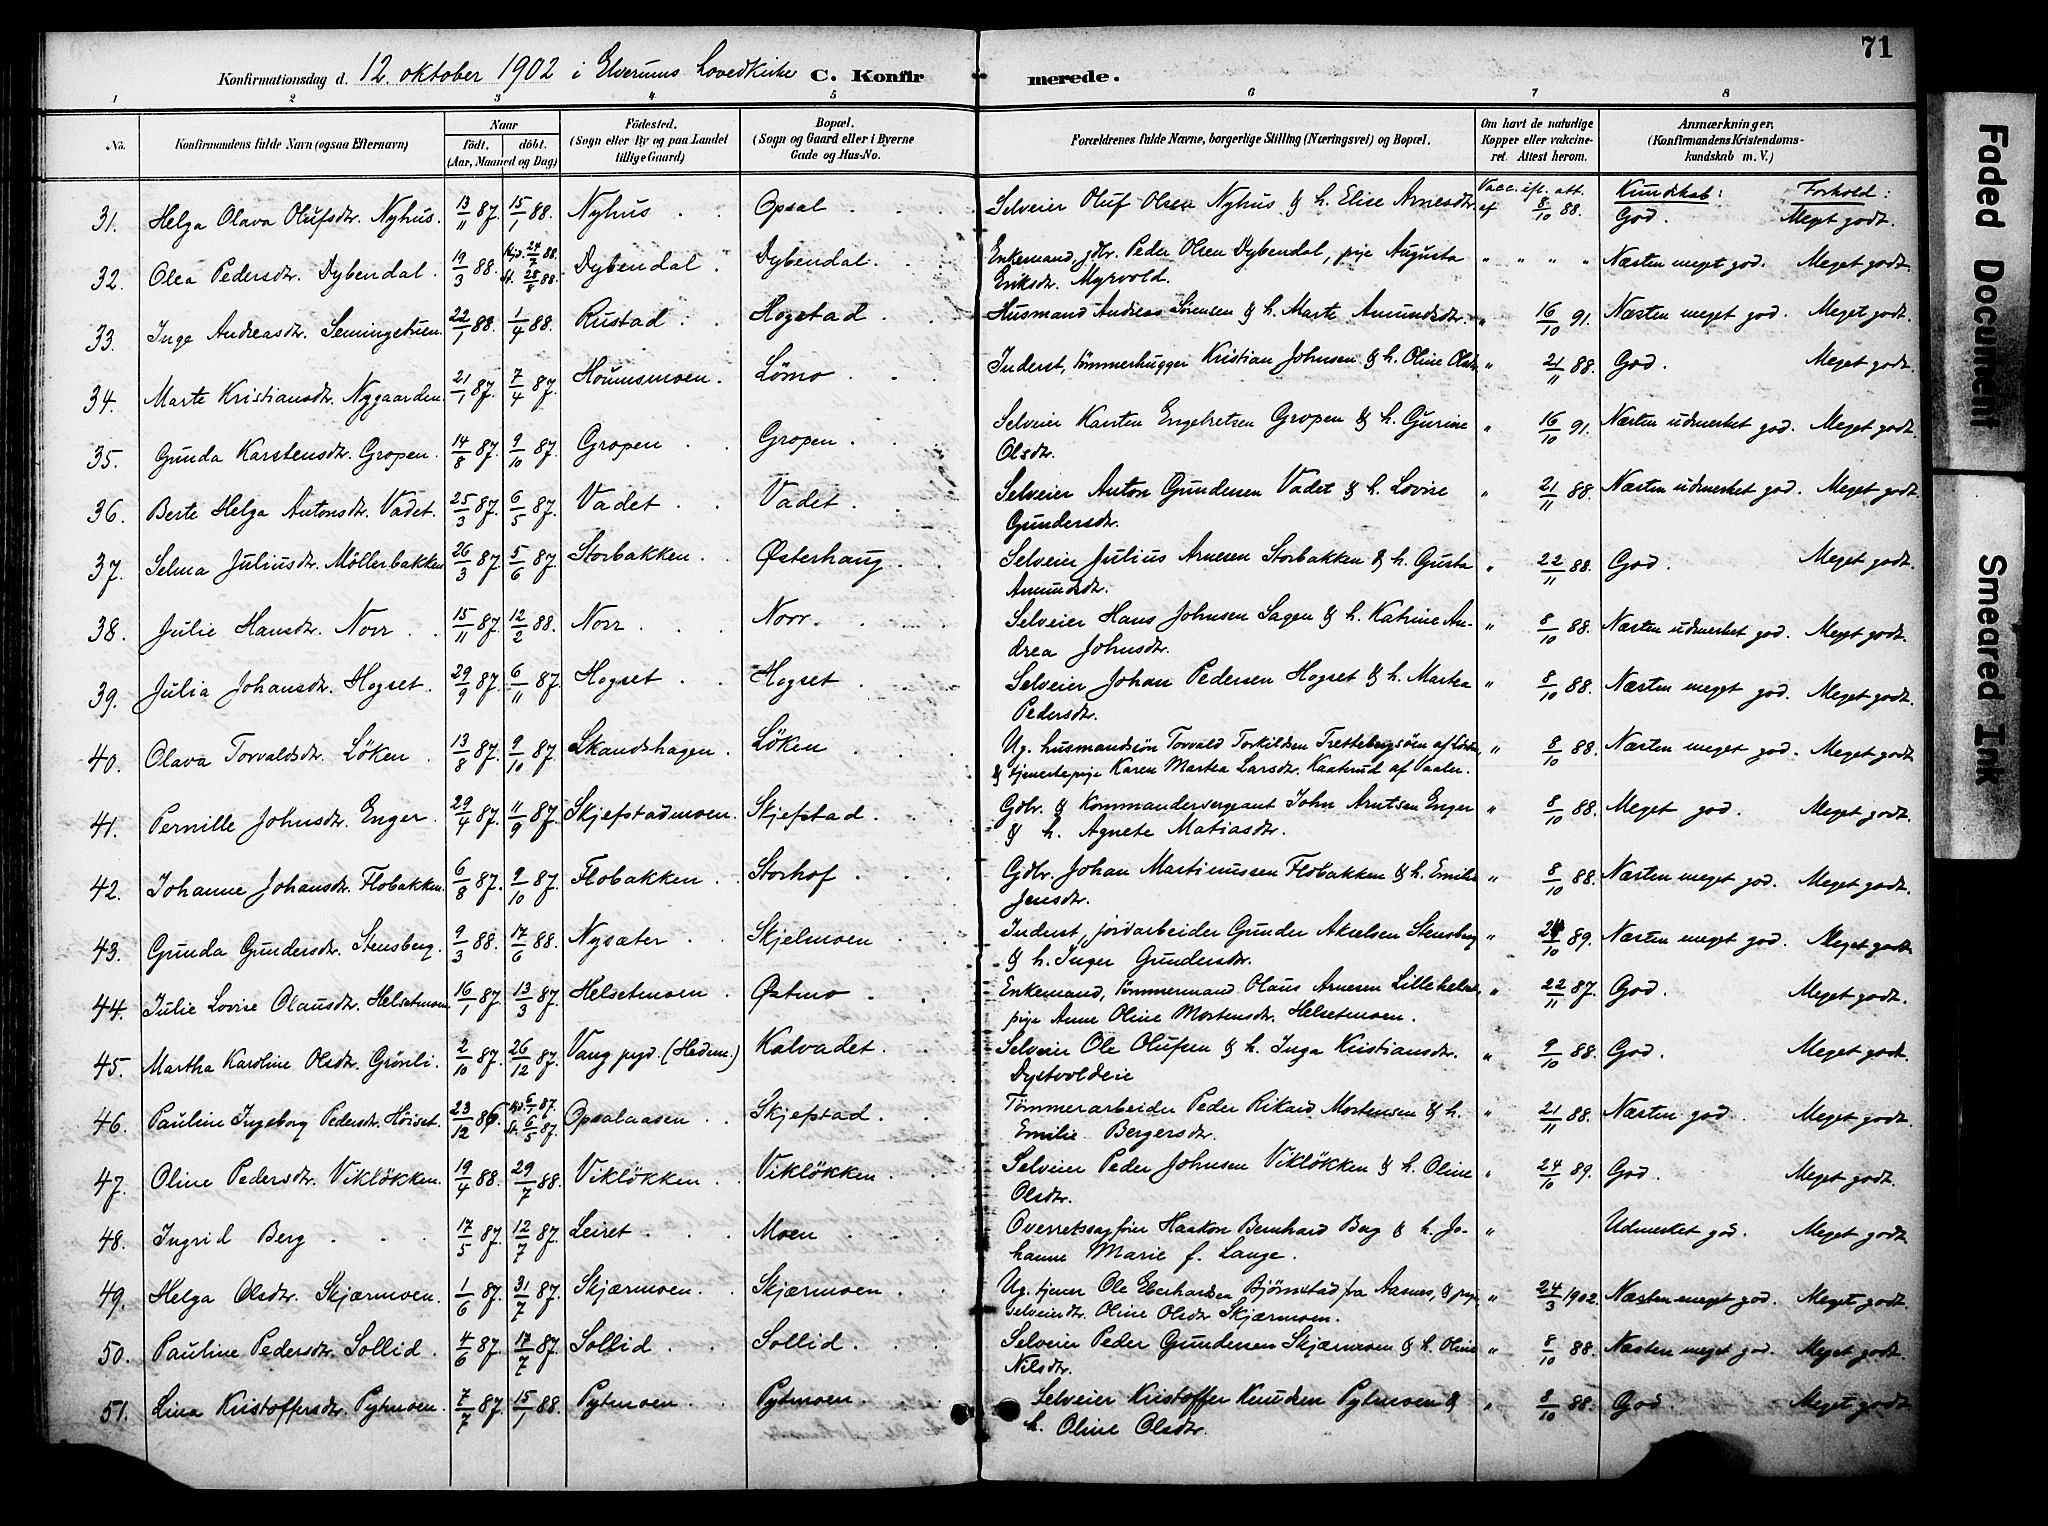 71
Konfirmationsdag d. 12. oktober 1902 i Elverums hovedkirke C. Konfirmerede.
1 2 3 4 5 6 7 8
No. Konfirmandens fulde Navn (ogsaa Efternavn) Naar født. døbt. (Aar, Maaned og Dag) Fødested. (Sogn eller By og paa Landet tillige Gaard) Bopæl. (Sogn og Gaard eller i Byerne Gade og Hus-No. Forældrenes fulde Navne, borgerlige Stilling (Næringsvei) og Bopæl. Om havt de naturlige Kopper eller vakcineret. Attest herom. Anmærkninger, (Konfirmandens Kristendomskundskab m. V.)
Vacc. ifl. att. Kundskab: Forhold:
31. Helga Olava Olufsdtr. Nyhus. 13/11 87. 15/1 88. Nyhus Opsal Selveier Oluf Olsen Nyhus & h. Elise Arnesdtr. af 8/10 88. God. Meget godt.
32. Olea Pedersdtr. Dybendal. 19/3 88. Dybendal. Dybendal. Enkemand, gbr. Peder Olsen Dybendal, pige Augusta " " " " Næsten meget god. Meget godt.
Eriksdtr. Myrvold.
33. Inga Andreasdtr. Semingstuen. 22/1 88. 1/4 88. Rustad Hogstad Husmand Andreas Sørensen & h. Marte Amundsdtr. " 16/10 91. Næsten meget god. Meget godt.
34. Marte Kristiansdtr. Nygaarden. 21/1 87. 7/4 87. Hoümsmoen. Lömo Inderst, tömmerhugger Kristian Johnsen & h. Oline Olsdtr. " 21/11 88. God. Meget godt.
35. Gunda Karstensdtr. Gropen. 14/8 87. 9/10 87. Gropen Gropen. Selveier Karsten Engebretsen Gropen & h. Gurine " 16/10 91. Næsten udmerket god. Meget godt.
Olsdtr.
36. Berte Helga Antonsdtr. Vadet. 25/3 87. 6/5 87. Vadet Vadet. Selveier Anton Gundersen Vadet & h. Lovise " 21/11 88. Næsten udmerket god. Meget godt.
Gundersdtr.
37. Selma Juliusdtr. Möllerbakken 26/3 87. 5/6 87. Storbakken. Østerhaug. Selveier Julius Arnesen Storbakken & h. Gusta " 22/11 88. God. Meget godt.
Amundsdtr.
38. Julie Hansdtr. Norr 15/11 87. 12/2 88. Norr Norr. Selveier Hans Johnsen Sagen & h. Katrine An- " 8/10 88. Næsten udmerket god. Meget godt.
drea Johnsdtr.
39. Julia Johansdtr. Hogset. 29/9 87. 6/11 87. Hogset Hogset Selveier Johan Pedersen Hogset & h. Martea " 8/10 88. Næsten meget god. Meget godt.
Pedersdtr.
40. Olava Torvaldsdtr. Löken 13/8 87. 9/10 87. Skandshagen. Löken Ug. husmandsön Torvald Torkildsen af " 8/10 88. Næsten meget god. Meget godt
& tjenestepige Karen Martea Larsdtr. Kaatrud af Vaaler.
41. Pernille Johnsdtr. Enger. 29/4 87. 11/9 87. Skjefstadmoen. Skjefstad. Gdbr. & Kommandersergeant John Arntsen Enger " 8/10 88. Meget god. Meget godt.
& h. Agnete Matiasdtr.
42. Johanne Johansdtr. Flobakken. 6/8 87. 9/10 87. Flobakken Storhof Gdbr. Johan Martinussen Flobakken & h. Emilie " 8/10 88. Næsten meget god. Meget godt.
Jensdtr.
43. Gunda Gundersdtr. Stensberg. 9/3 88. 17/6 88. Nysæter Skjelmoen Inderst, jordarbeider Gunder Akselsen Stensberg " 24/10 89. Næsten meget god. Meget godt.
& h. Inger Gundersdtr.
44. Julie Lovise Olausdtr. Helsetmoen 16/1 87. 13/3 87. Helsetmoen Østmo Enkemand, tömmermand Olaus Arnesen Lillehelset, " 22/11 87. God. Meget godt.
pige Anne Oline Mortensdtr. Helsetmoen.
45. Martha Karoline Olsdtr. Grönli. 2/10 87. 26/12 87. Vang pgd. (Hedem.) Kalvadet. Selveier Ole Olufsen & h. Inga Kristiansdtr. " 9/10 88. God. Meget godt.
46. Pauline Ingeborg Pedersdtr. Höiset. 23/12 86. Opsalaasen Skjefstad. Tömmerarbeider Peder Rikard Mortensen & h. " 21/11 88. Næsten god. Meget godt.
Emilie Bergersdtr.
47. Oline Pedersdtr. Viklökken. 19/4 88. 29/7 88. Viklökken Viklökken. Selveier Peder Johnsen Viklökken & h. Oline " 24/10 89. God. Meget godt.
Olsdtr.
48. Ingrid Berg 17/5 87. 12/7 87. Leiret Moen Overretssagförer Haakon Bernhard Berg & h. Jo- " Udmerket god. Meget godt
hanne Marie f. Lange.
49. Helga Olsdtr. Skjærmoen. 1/6 87. 31/7 87. Skjærmoen. Skjærmoen. Ug. tjener Ole Eberhardsen Björnstad fra Aasnes, & pige " 24/3 1902. Næsten meget god. Meget godt.
selveierdtr. Oline Olsdtr Skjærmoen.
50. Pauline Pedersdtr. Sollid. 4/6 87. 17/7 87. Sollid Sollid. Selveier Peder Gundersen Skjærmoen & h. Oline " 8/10 88. Næsten meget god. Meget godt.
Nilsdtr.
51. Lina Kristoffersdtr. Pytmoen. 7/7 87. 15/1 88. Pytmoen Pytmoen. Selveier Kristoffer Knudsen Pytmoen & " 8/10 88. God. Meget godt.
h. Oline Olsdtr.
Faded Document
Smeared Ink